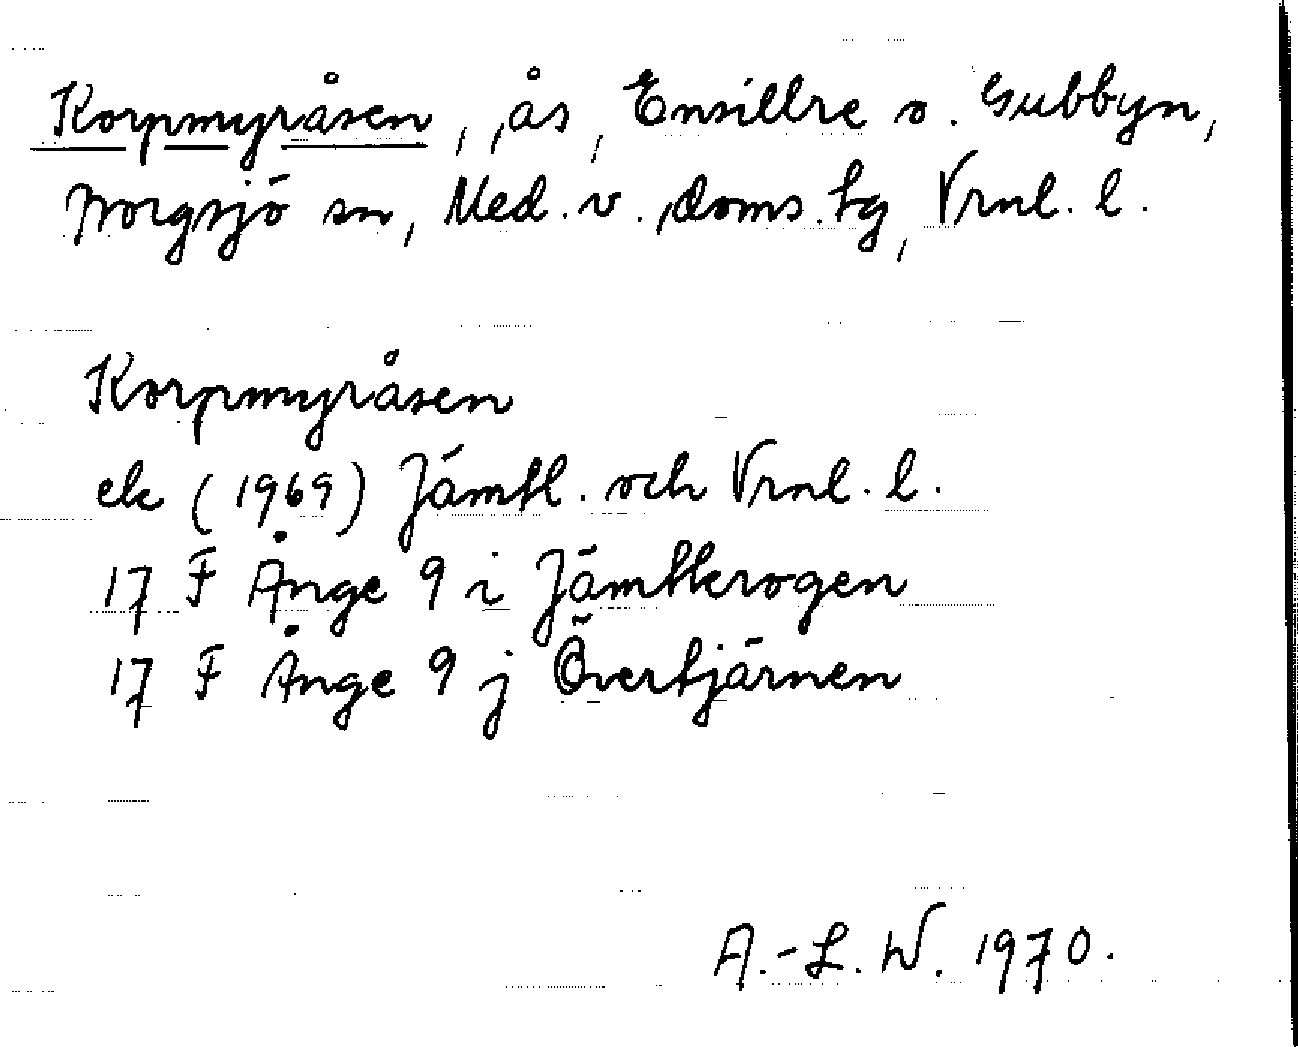 Korpmyråsen, ås, Ensillre o. Gubbyn,
Borgsjö sn, Med. v. doms. tg, Vrnl. l.
Korpmyråsen
ek (1969) Jämtl. och Vrnl. l.
17 F Ånge 9 i Jämtkrogen
17 F Ånge 9 j Övertjärnen
A.-L. W. 1970.